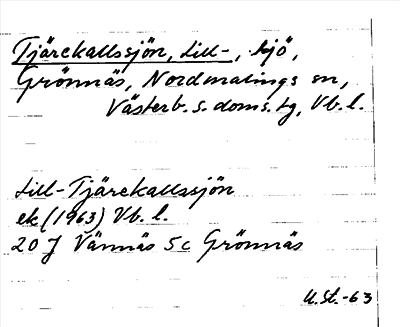 Tjärekallssjön, Lill-, sjö,
Grönnäs, Nordmalings sn,
Västerb. s. doms. tg, Vb. l.
Lill-Tjärekallssjön
ek (1963) Vb. l.
20 J Vännäs 5c Grönnäs
U.St.-63